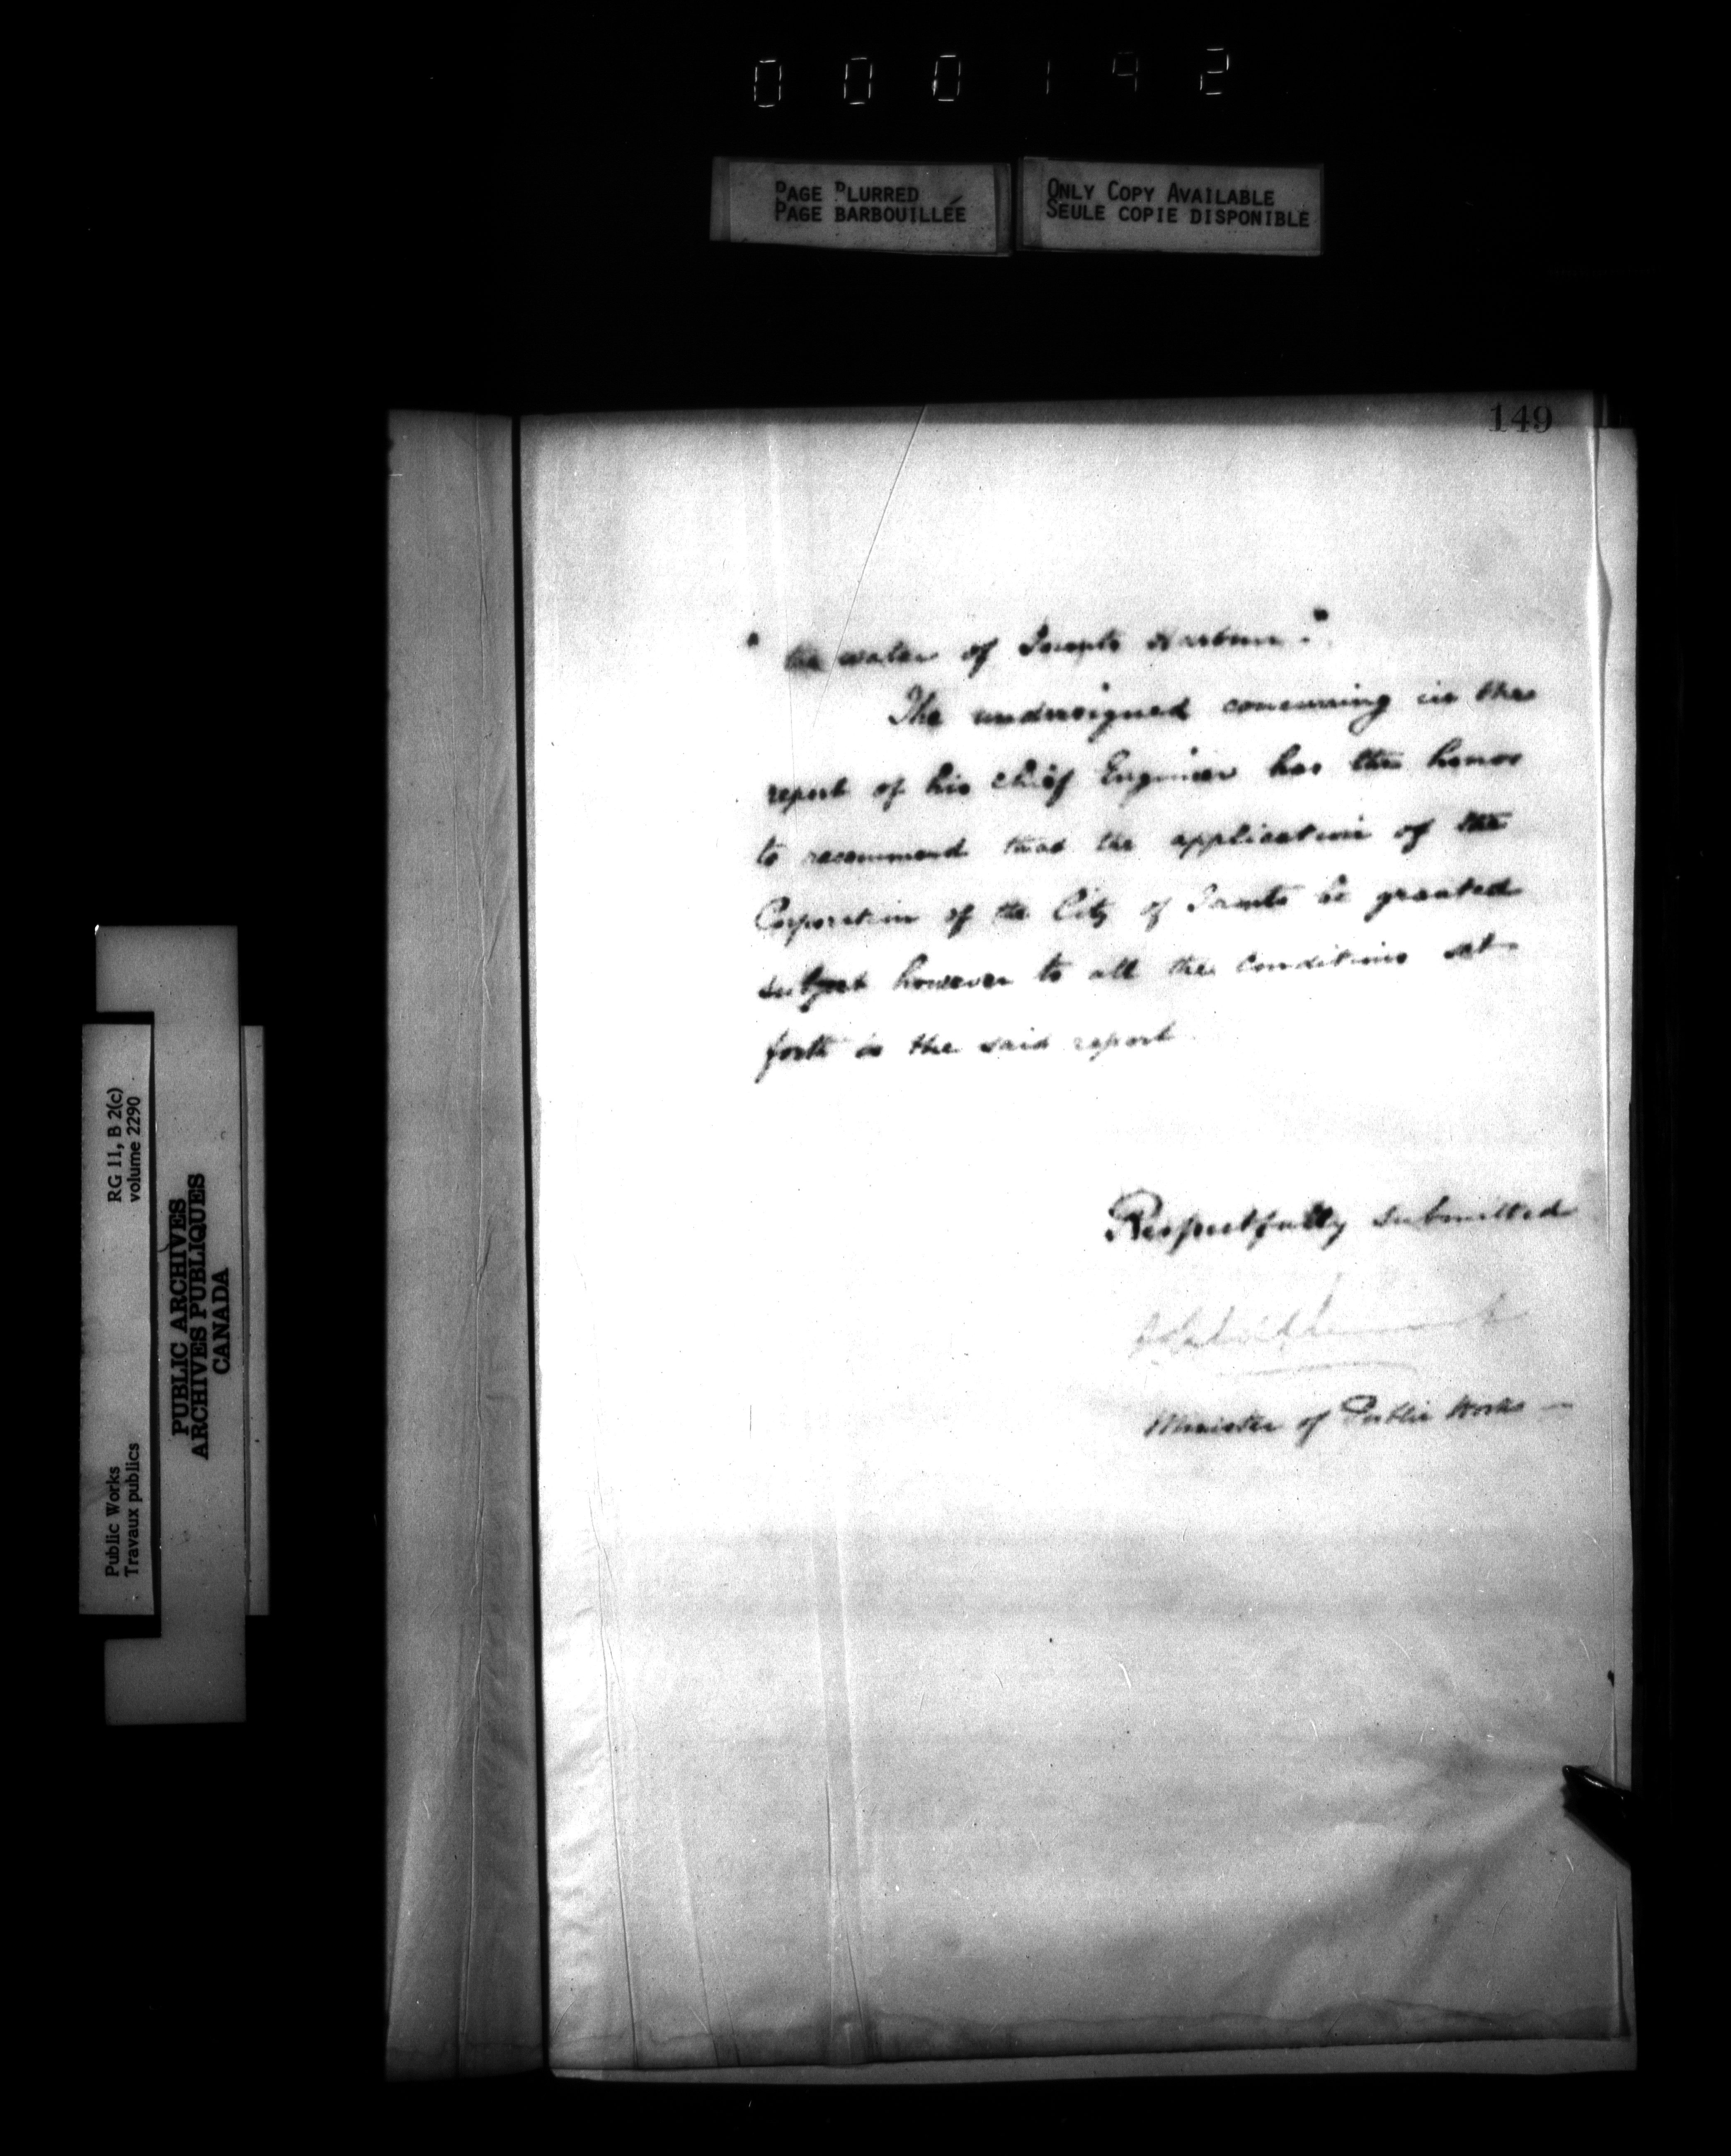 000192
PAGE BLURRED
PAGE BARBOUILLÉE
ONLY COPY AVAILABLE
SEULE COPIE DISPONIBLE
149
" the water of Toronto Harbour."
The undersigned concurring in the
report of his Chief Engineer has the honor
to recommend that the application of the
Corporation of the City of Toronto be granted
subject however to all the conditions set
forth in the said report
Respectfully submitted
Minister of Public Works
Public Works
Travaux publics
RG 11, B 2(c)
volume 2290
PUBLIC ARCHIVES
ARCHIVES PUBLIQUES
CANADA